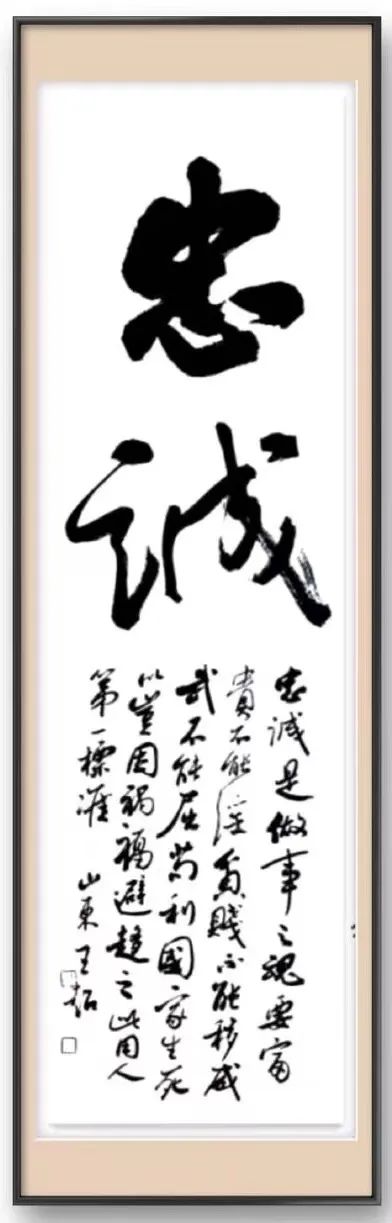 忠
誠
忠誠是做事之魂要富
貴不能淫貧賤不能移威
武不能屈苟利國家生死
以豈因禍福避趨之此用人
第一標准 山東王